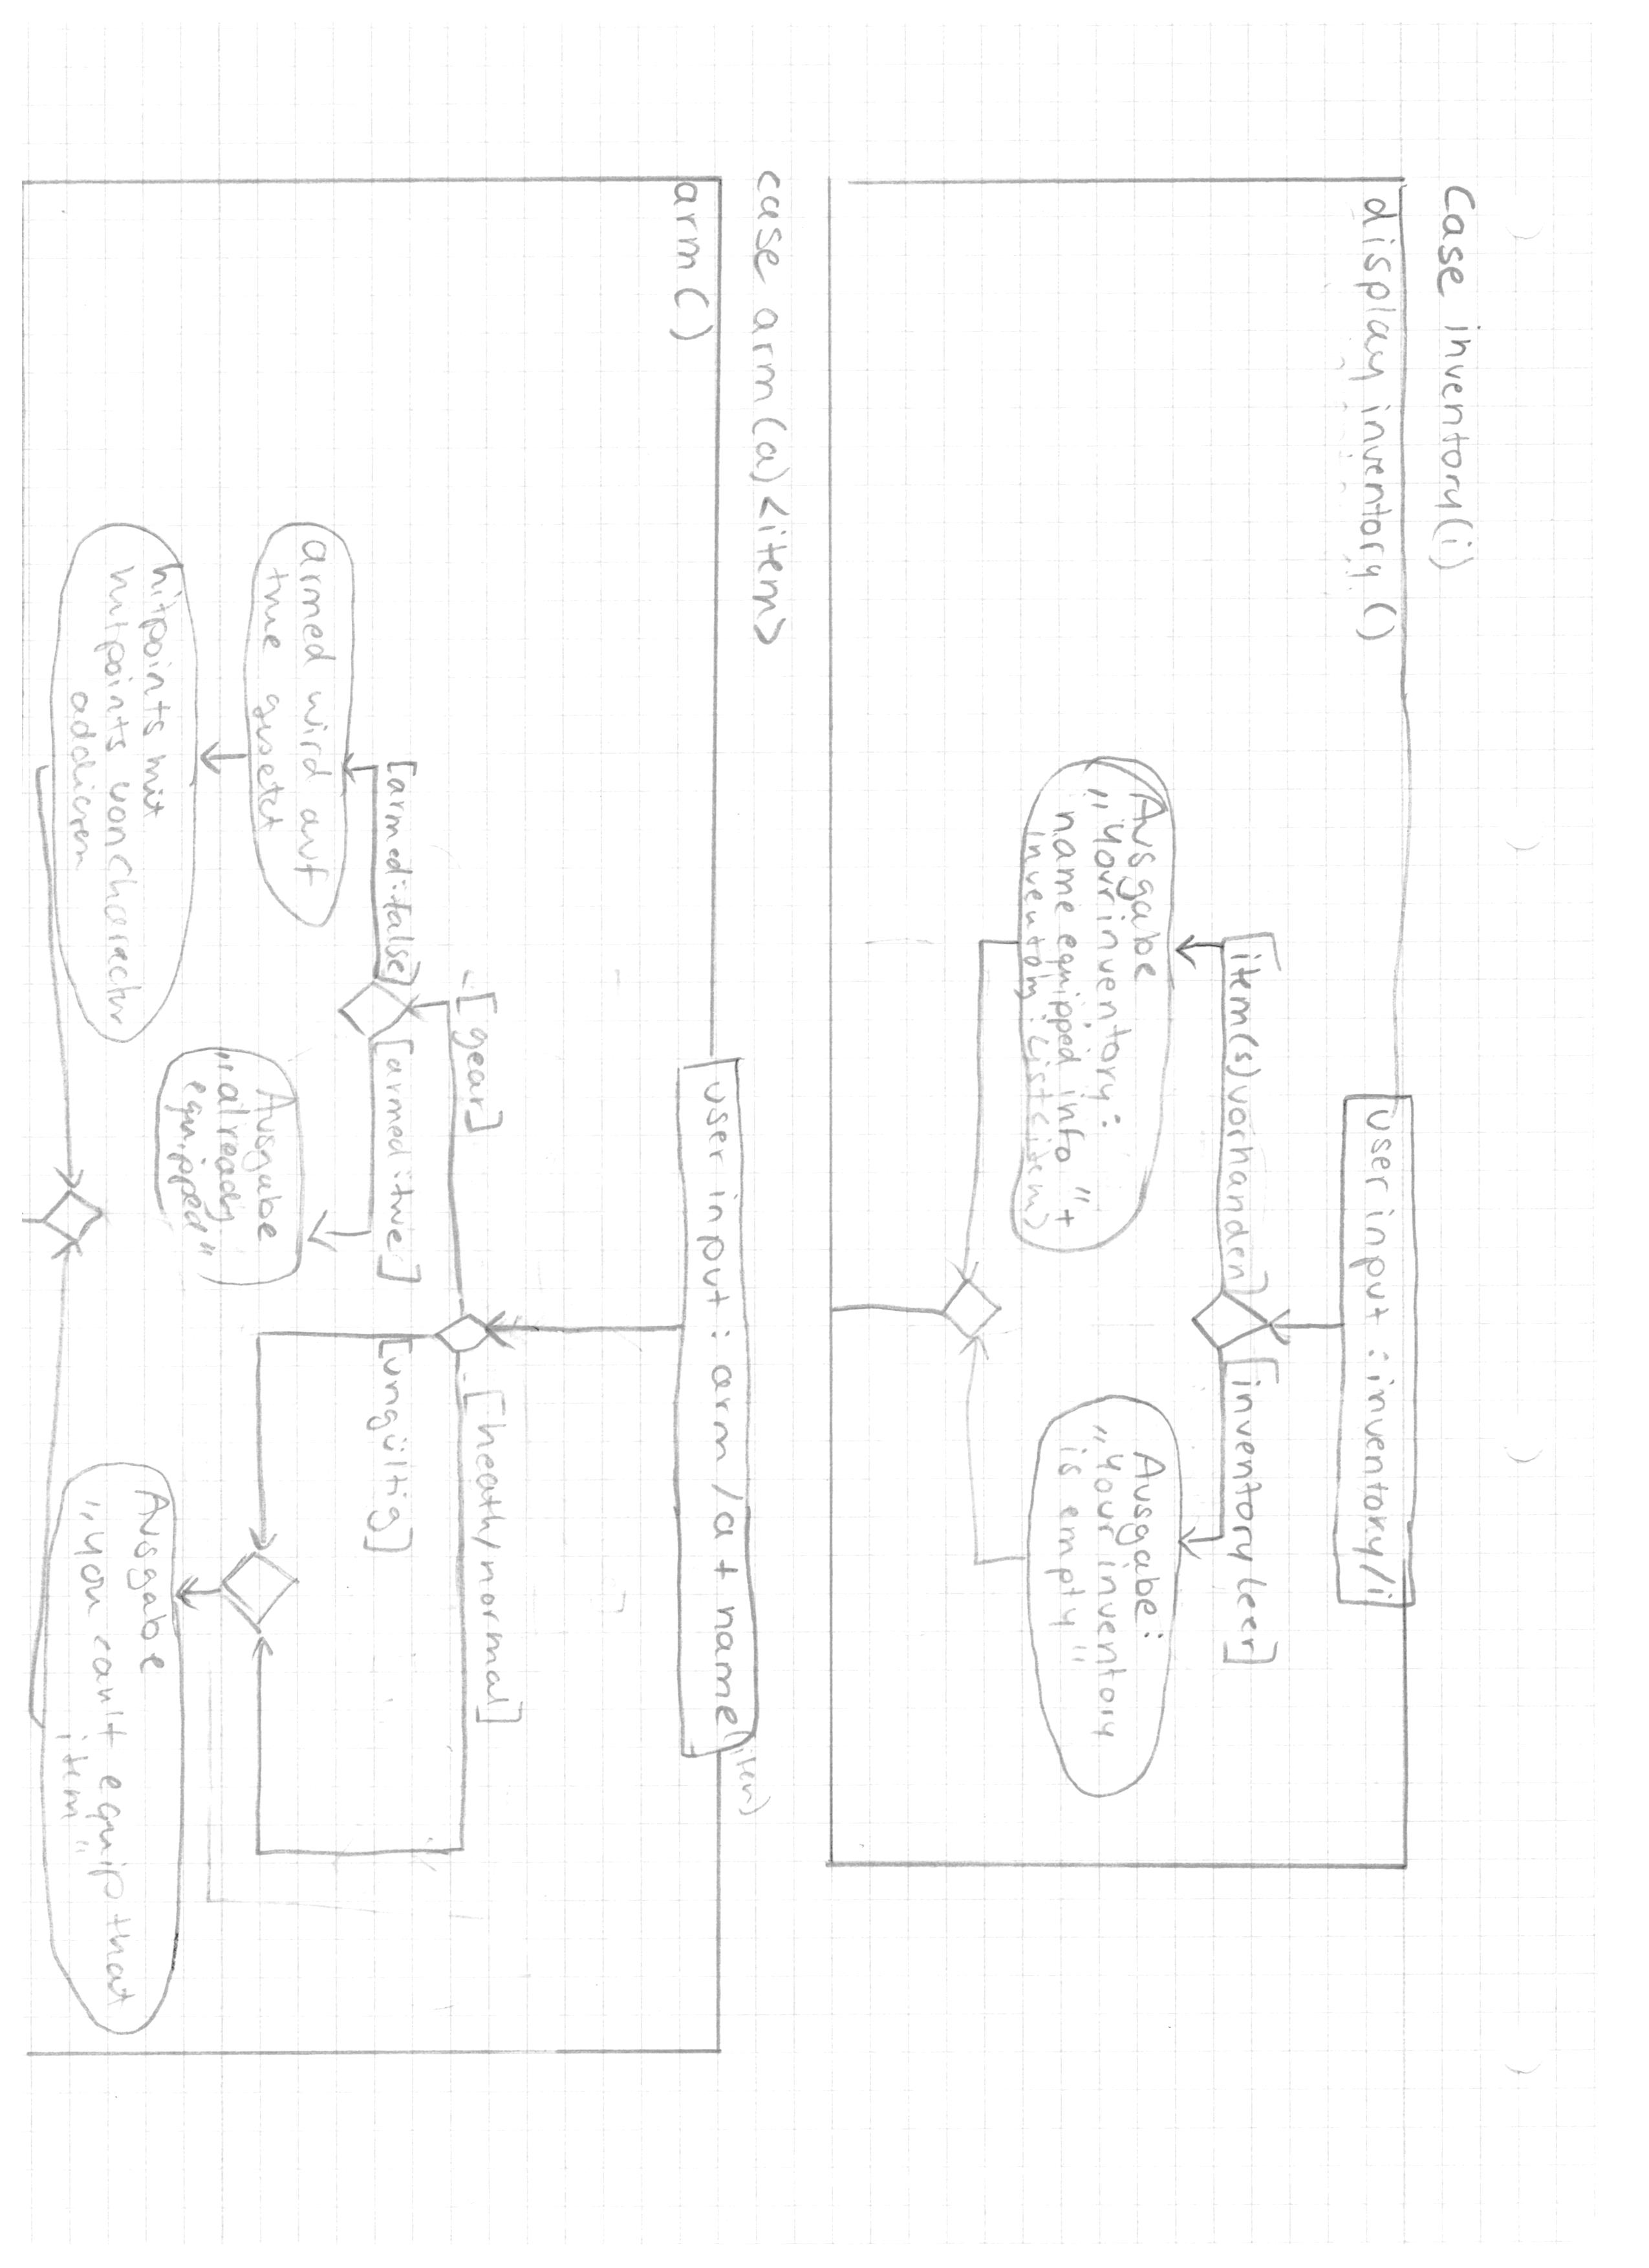 Case inventory(i)
display inventory ()
user input : inventory/i
[item(s) vorhanden]
[inventory leer]
Ausgabe
„Your inventory:
name equipped info "+
inventory : List<item>
Ausgabe:
„Your inventory
is empty"
case arm (a) <item>
user input : arm /a + name (item)
arm ()
[gear]
[heath/normal]
[armed: false]
[armed: true]
[ungültig]
armed wird auf
true gesetzt
Ausgabe
„already
equipped"
hitpoints mit
hitpoints von Character
addieren
Ausgabe
„you can't equip that
item"